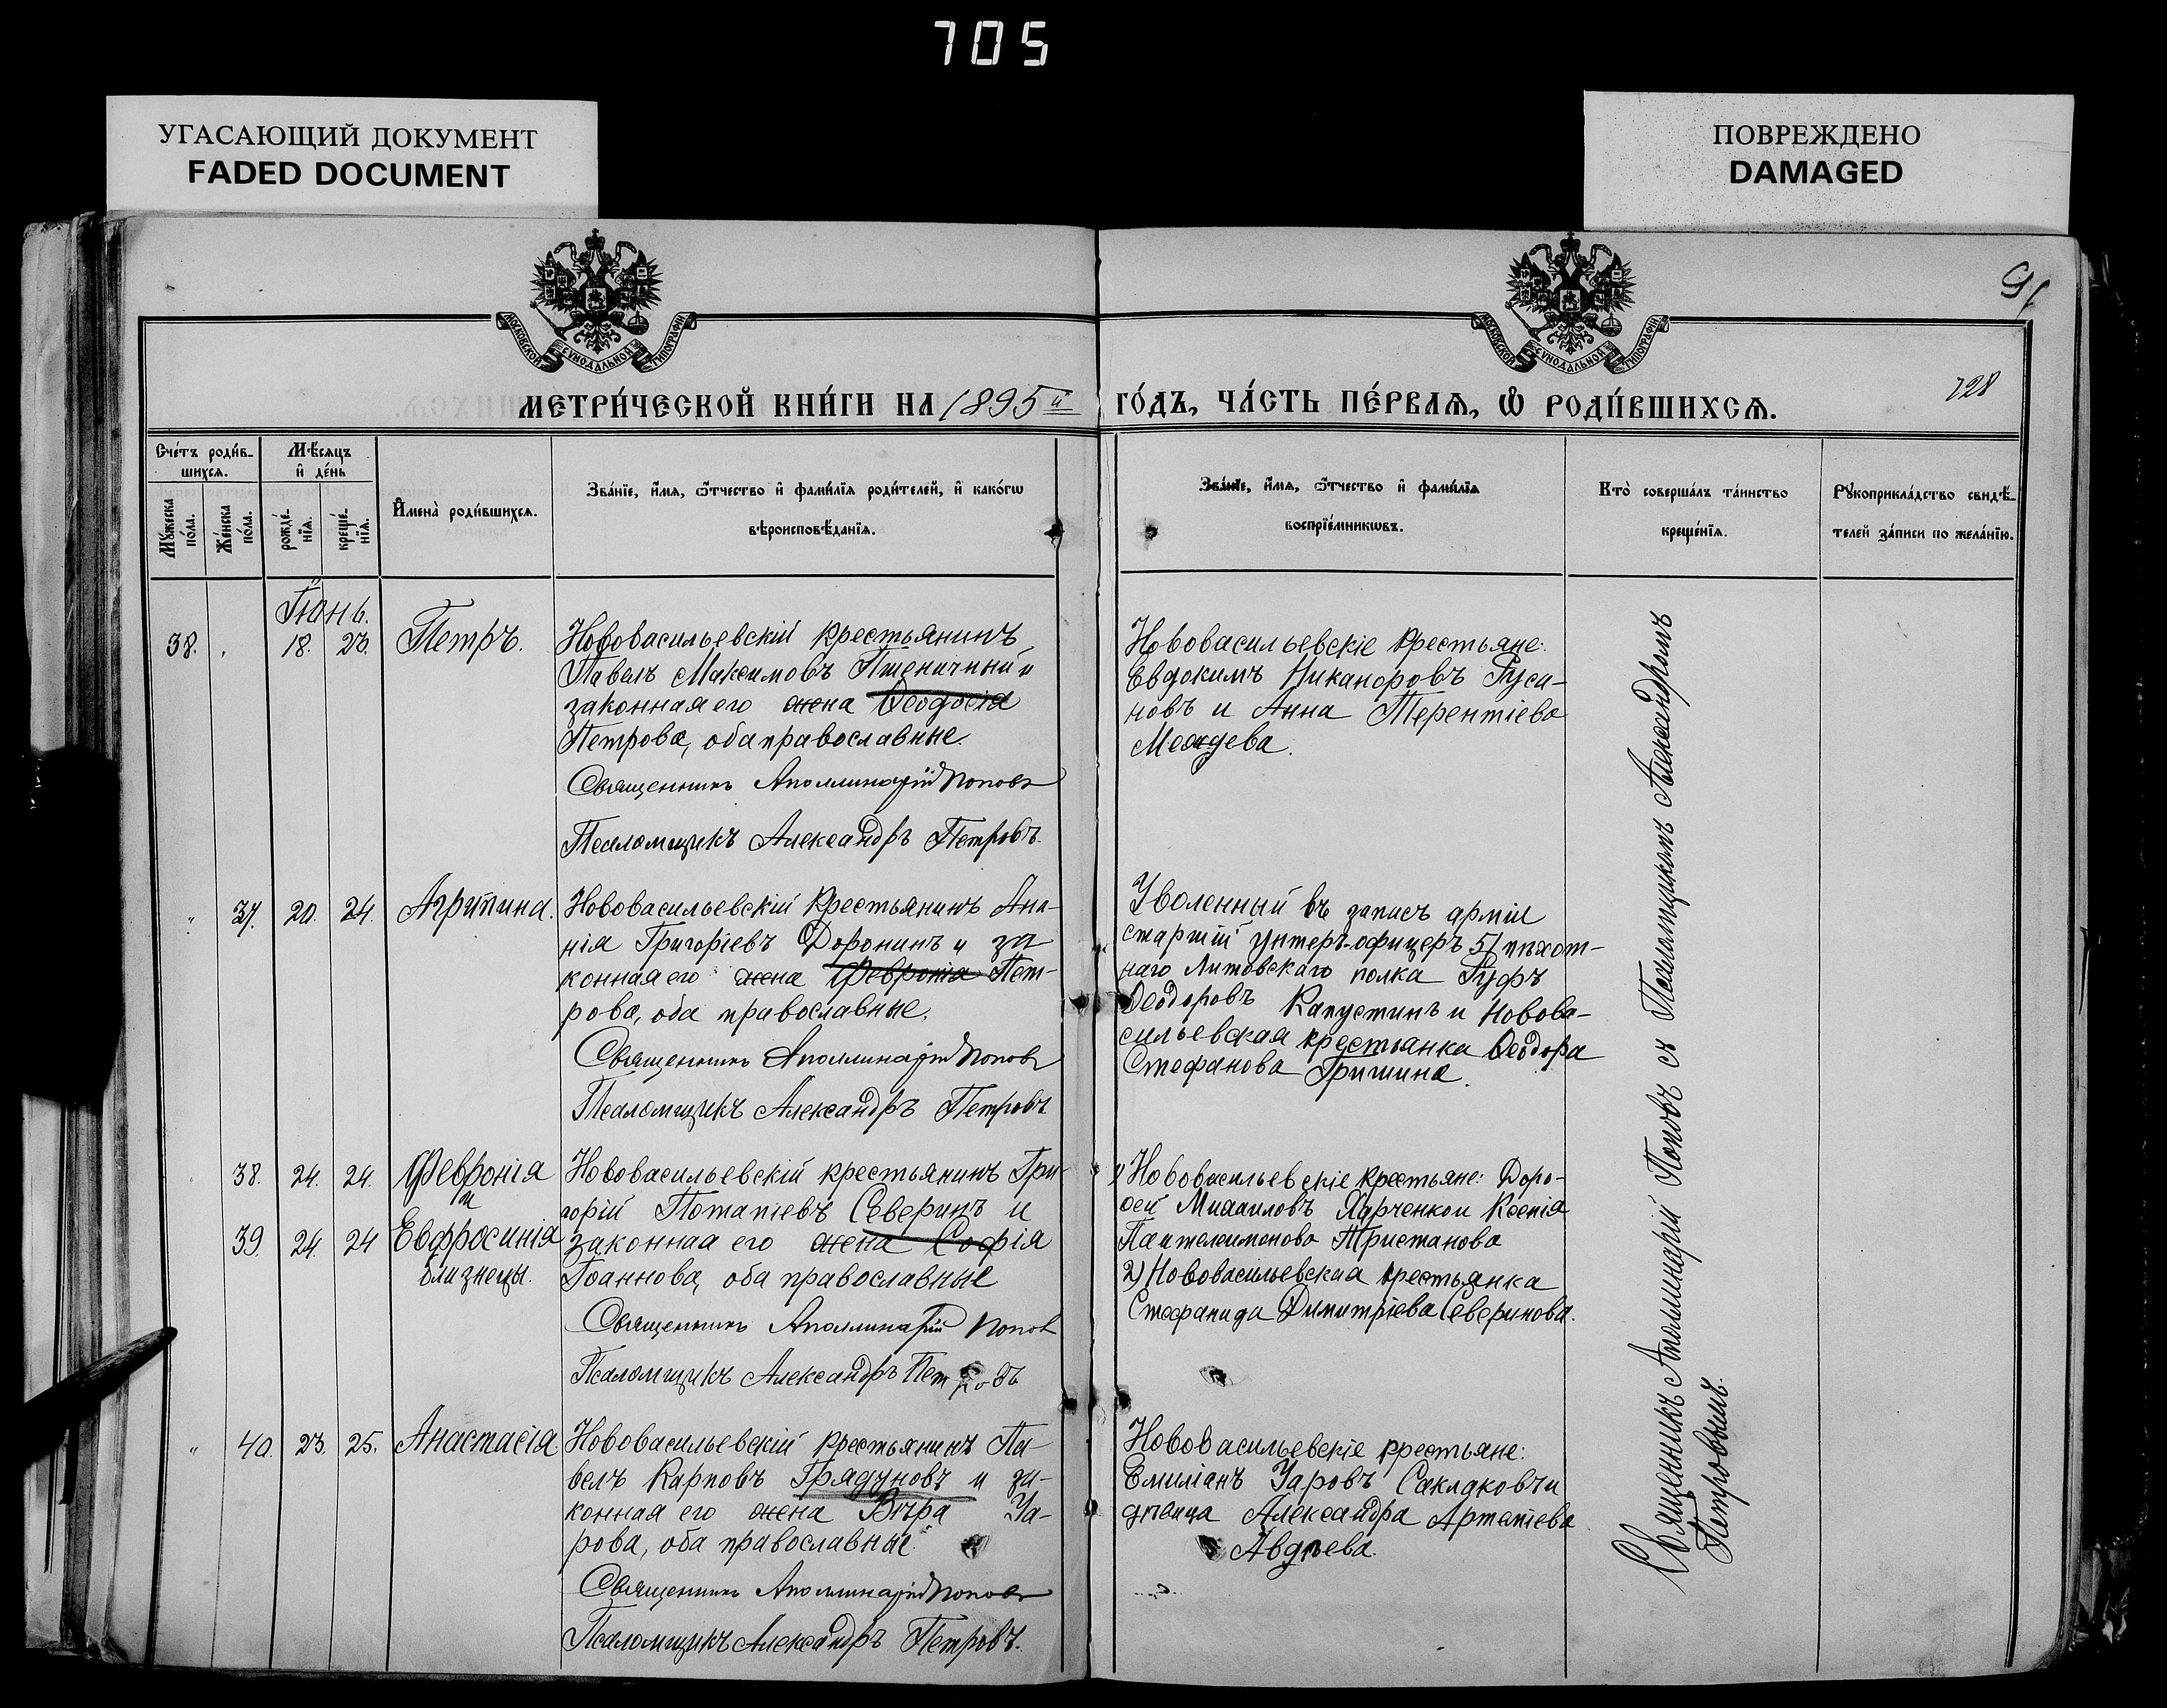 705
УГАСАЮЩИЙ ДОКУМЕНТ
FADED DOCUMENT
ПОВРЕЖДЕНО
DAMAGED
МОСКОВСКОЙ СУНОДАЛЬНОЙ ТИПОГРАФІИ
МОСКОВСКОЙ СУНОДАЛЬНОЙ ТИПОГРАФІИ
91
128
МЕТРИ́ЧЕСКОЙ КНИ́ГИ НА 1895й
ГО́ДЪ, ЧА́СТЬ ПЕ́РВАѦ, Ѡ҆ РОДИ́ВШИХСѦ.
Сче́тъ роди́в-
шихсѧ.
Мꙋ́жеска по́ла.
Же́нска по́ла.
Мѣ́сѧцъ
и҆ де́нь
рожде́-
нїѧ.
креще́-
нїѧ.
И҆мена̀ роди́вшихсѧ.
Зва́нїе, и҆́мѧ, ѻ҆́тчество и҆ фами́лїѧ роди́телей, и҆ како́гѡ
вѣроисповѣ́данїѧ.
Зва́нїе, и҆́мѧ, ѻ҆́тчество и҆ фами́лїѧ
воспрїе́мникѡвъ.
Кто̀ соверша́лъ та́инство
креще́нїѧ.
Рꙋкоприкла́дство свидѣ́-
телей за́писи по жела́нїю.
Іюнь.
38. 18. 23. Петръ.
Нововасильевскій крестьянинъ
Павелъ Максимовъ Пшеничный и
законная его жена Ѳеодосія
Петрова, оба православные.
Священникъ Аполлинарій Поповъ
Псаломщикъ Александръ Петровъ.
Нововасильевскіе крестьяне:
Евдокимъ Никаноровъ Руса-
новъ и Анна Терентіева
Междева.
" 37. 20. 24. Агрипина.
Нововасильевскій крестьянинъ Ана-
нія Григоріевъ Доронинъ и за
конная его жена Февронія Пет-
рова, оба православные.
Священникъ Аполлинарій Поповъ
Псаломщикъ Александръ Петровъ
Уволенный въ запасъ арміи
старшій унтеръ-офицеръ 51 пѣхот-
наго Литовскаго полка Руфъ
Ѳеодоровъ Капустинъ и Новова-
сильевская крестьянка Ѳеодора
Стефанова Гришина.
38. 24. 24. Февронія
и
39. 24. 24 Евфросинія
близнецы.
Нововасильевскій крестьянинъ Гри-
горій Потапіевъ Северинъ и
законная его жена Софія
Іоаннова, оба православные
Священникъ Аполлинарій Поповъ
Псаломщикъ Александръ Петровъ
1) Нововасильевскіе крестьяне: Доро-
ѳей Михаиловъ Харченко и Ксенія
Пантелеимонова Тристанова
2) Нововасильевская крестьянка
Стефанида Димитріева Северинова.
" 40. 23. 25. Анастасія.
Нововасильевскій крестьянинъ Па-
велъ Карповъ Грядуновъ и за-
конная его жена Вѣра Уа-
рова, оба православные.
Священникъ Аполлинарій Поповъ
Псаломщикъ Александръ Петровъ.
Нововасильевскіе крестьяне:
Емиліанъ Уаровъ Саклаковъ и
дѣвица Александра Артеміева
Авдѣева.
Священникъ Аполлинарій Поповъ съ Псаломщикомъ Александромъ
Петровымъ.